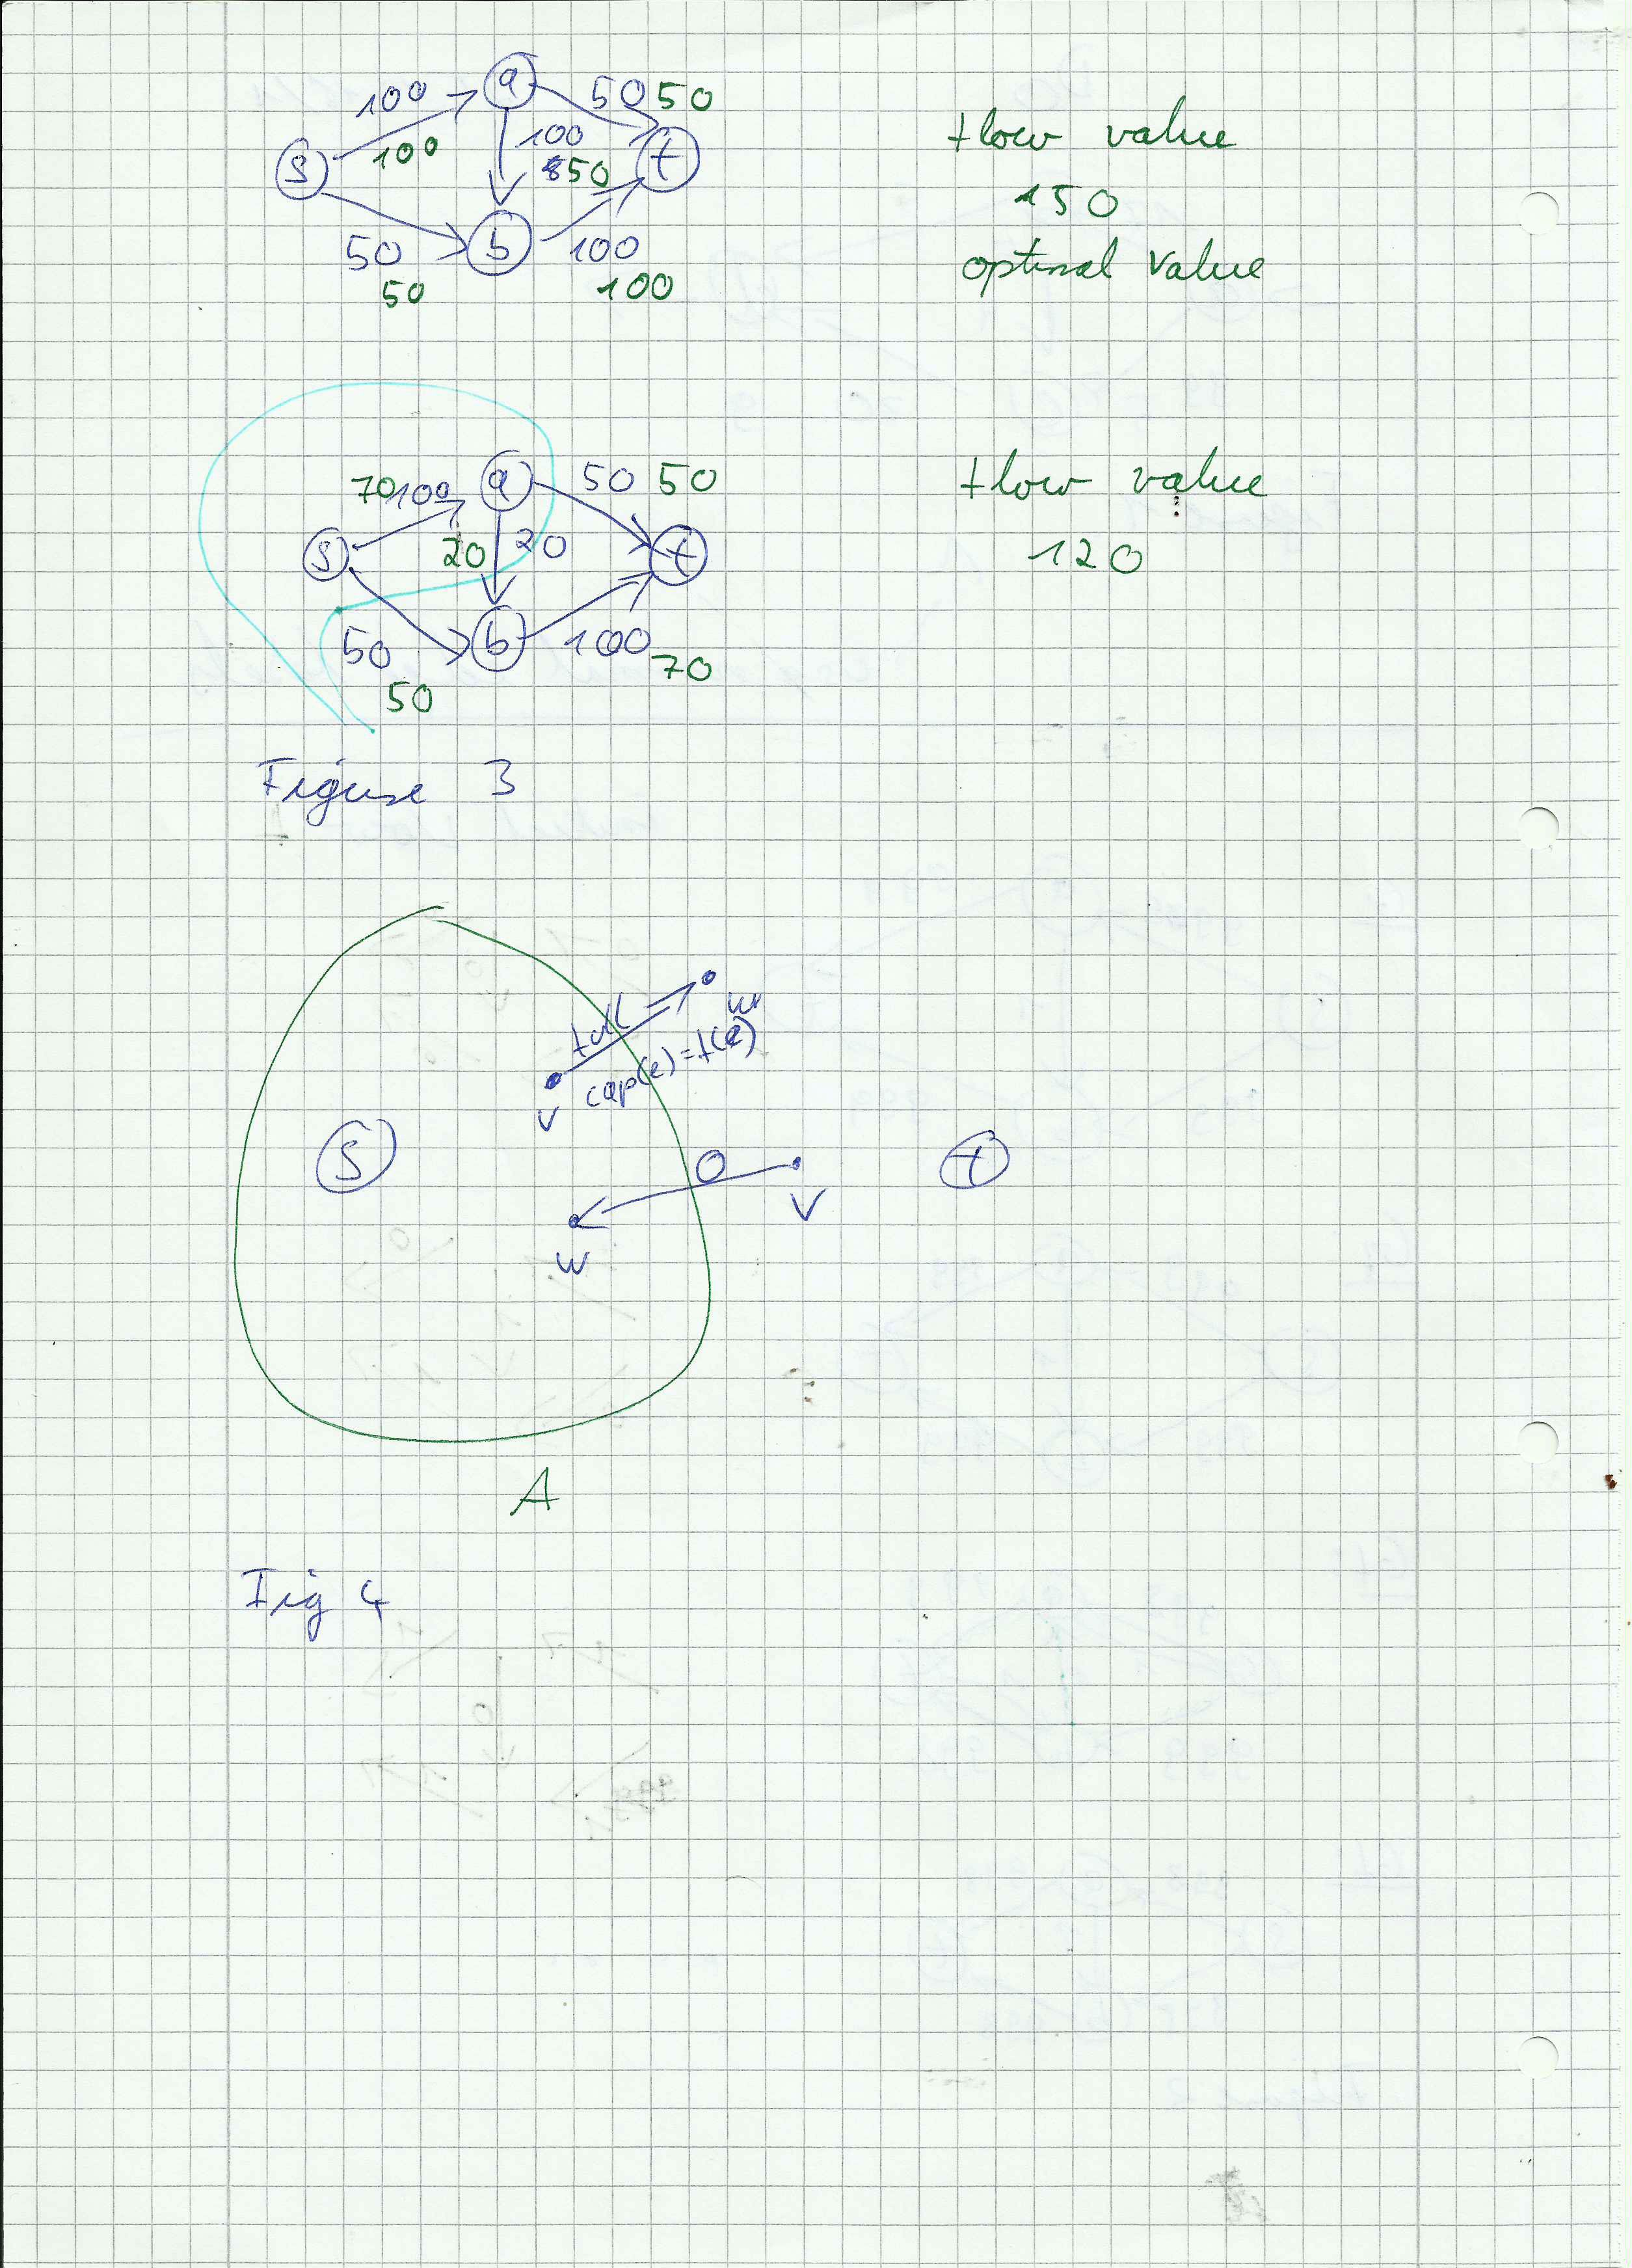 100 a 50 50
s 100 100 t
850
50 b 100
50 100
flow value
150
optimal value
70 100 a 50 50
s 20 20 t
50 b 100
50 70
flow value
120
Figure 3
full w
v cap(e)=f(e)
s 0 t
w v
A
Fig 4